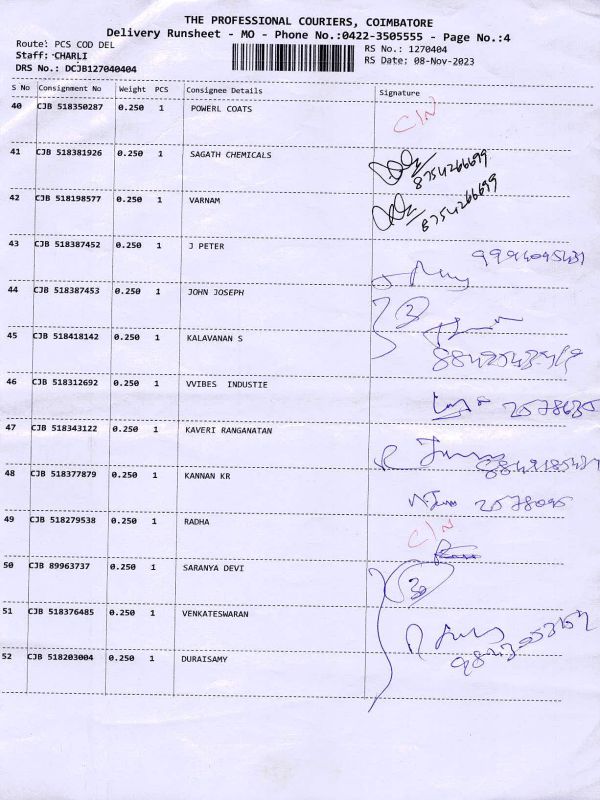 THE PROFESSIONAL COURIERS, COIMBATORE
Delivery Runsheet - MO - Phone No.:0422-3505555 - Page No.:4
Route: PCS COD DEL
RS No.: 1270404
Staff: CHARLI
RS Date: 08-Nov-2023
DRS No.: DCJB127040404
S No Consignment No Weight PCS Consignee Details Signature
40 CJB 518350287 0.250 1 POWERL COATS C/N
41 CJB 518381926 0.250 1 SAGATH CHEMICALS 8754266699
42 CJB 518198577 0.250 1 VARNAM 8754266699
43 CJB 518387452 0.250 1 J PETER
44 CJB 518387453 0.250 1 JOHN JOSEPH
45 CJB 518418142 0.250 1 KALAVANAN S
46 CJB 518312692 0.250 1 VVIBES INDUSTIE 2578635
47 CJB 518343122 0.250 1 KAVERI RANGANATAN
48 CJB 518377879 0.250 1 KANNAN KR
49 CJB 518279538 0.250 1 RADHA C/N
50 CJB 89963737 0.250 1 SARANYA DEVI
51 CJB 518376485 0.250 1 VENKATESWARAN
52 CJB 518203004 0.250 1 DURAISAMY